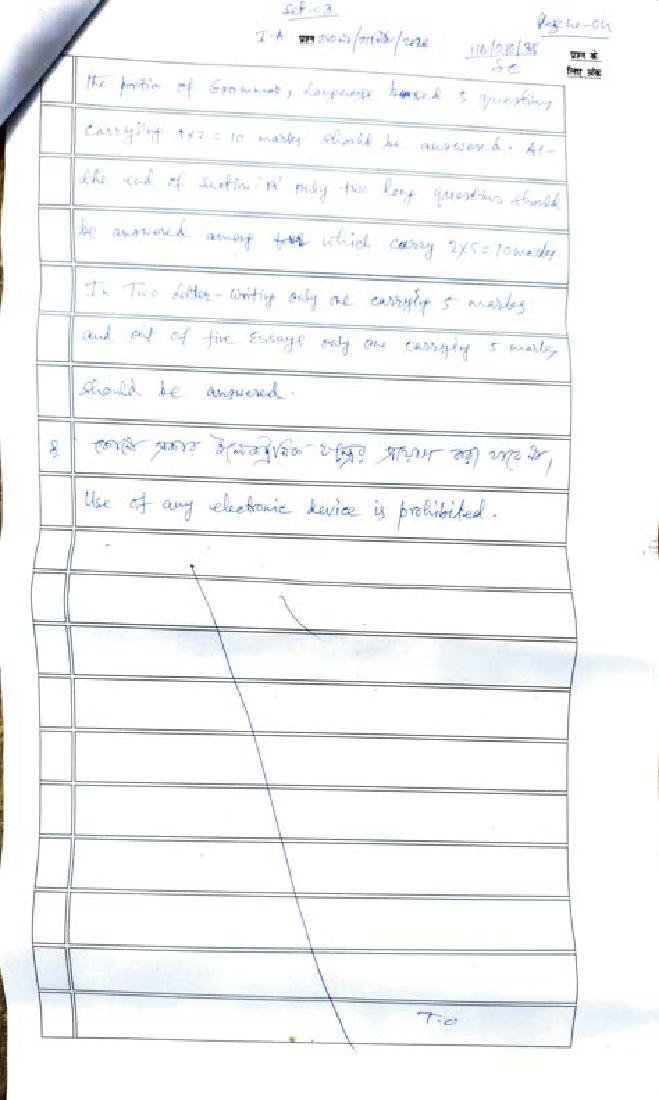 Set-03
I.A प्रश्न
116/216/35
Sc
प्रश्न के
लिए अंक
the portion of Grammar, Language based 5 questions
carrying 5x2 = 10 marks should be answered. At-
the end of Section-'B' only two long questions should
be answered among four which carry 2x5=10 marks.
In Two Letter-writing only one carrying 5 marks
and out of five Essays only one carrying 5 marks
should be answered.
কোনো প্রকার ইলেকট্রনিক যন্ত্রের
Use of any electronic device is prohibited.
T.O